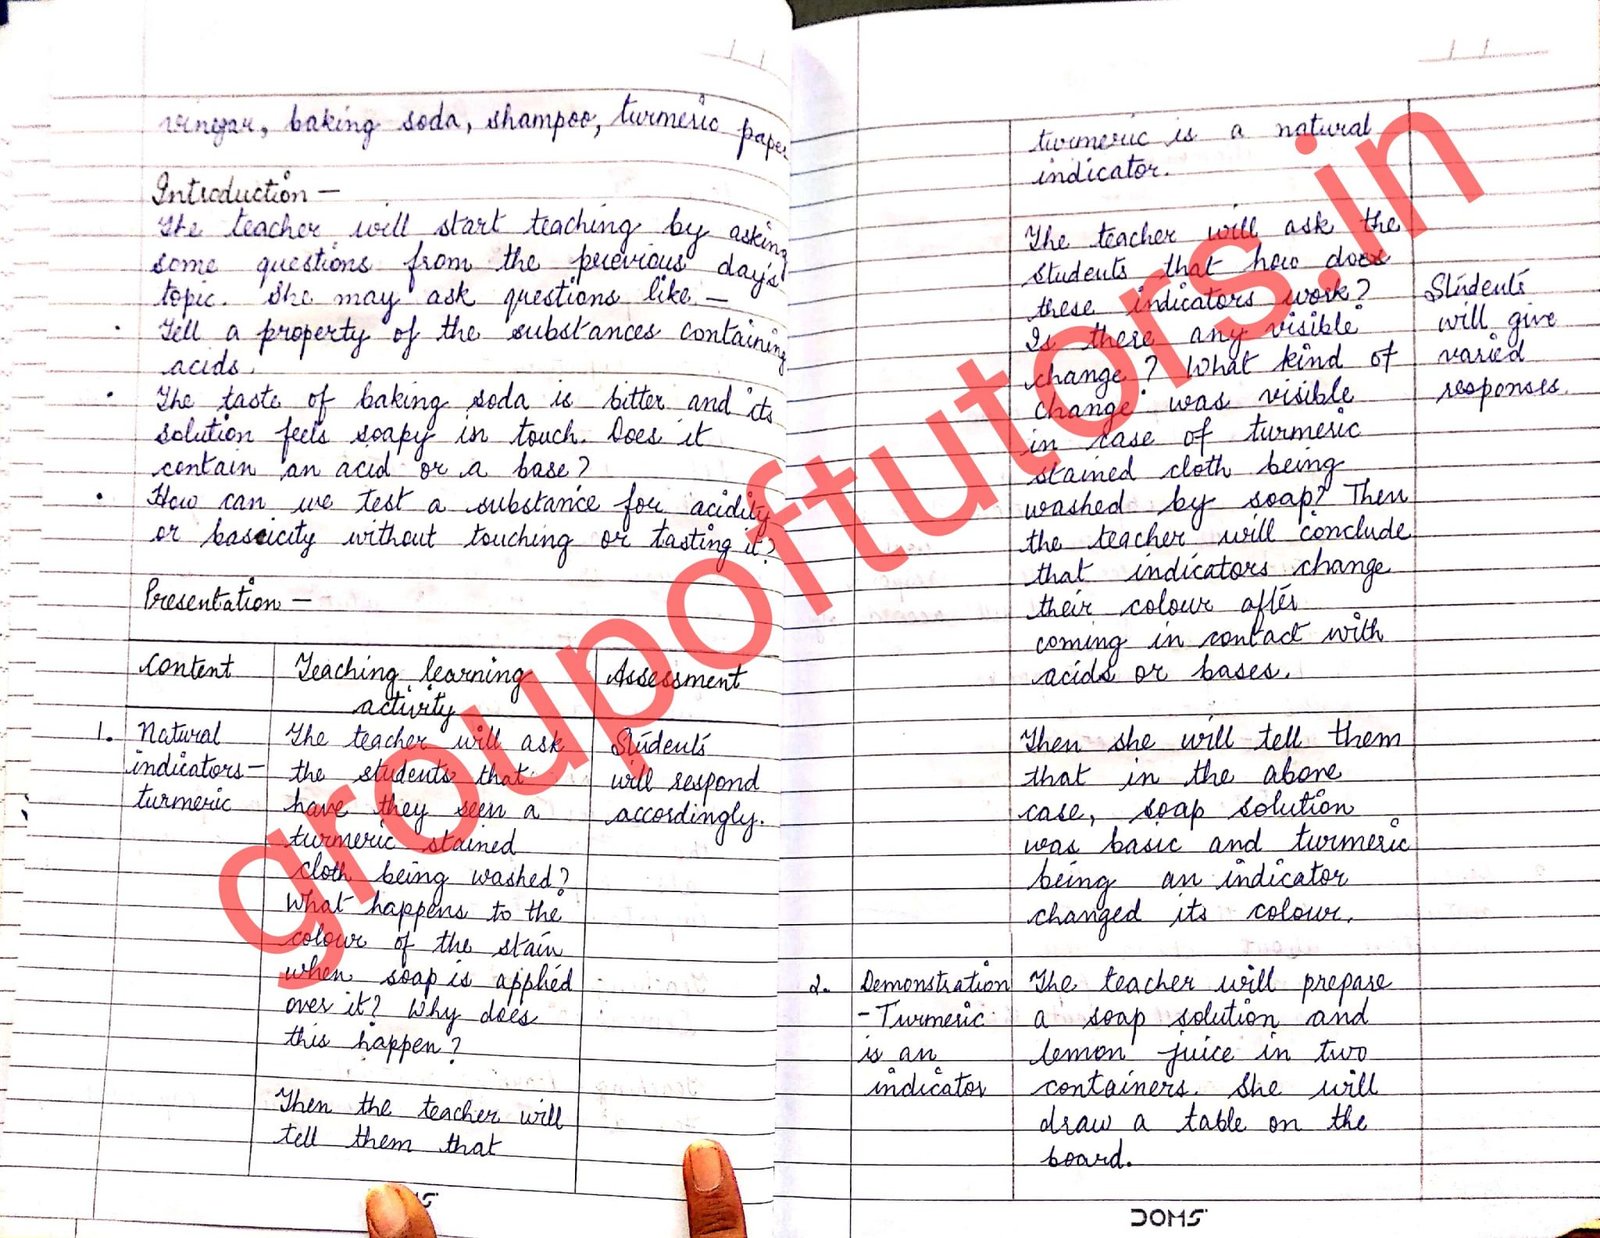 vinegar, baking soda, shampoo, turmeric paper
Introduction —
The teacher will start teaching by asking
some questions from the previous day's
topic. She may ask questions like —
• Tell a property of the substances containing
acids.
• The taste of baking soda is bitter and its
solution feels soapy in touch. Does it
contain an acid or a base?
• How can we test a substance for acidity
or basicity without touching or tasting it?
Presentation —
Content
Teaching learning
activity
Assessment
1. Natural
indicators —
turmeric
The teacher will ask
the students that
have they seen a
turmeric stained
cloth being washed?
What happens to the
colour of the stain
when soap is applied
over it? Why does
this happen?
Then the teacher will
tell them that
Students
will respond
accordingly.
DOMS
turmeric is a natural
indicator.
The teacher will ask the
students that how does
these indicators work?
Is there any visible
change? What kind of
change was visible
in case of turmeric
stained cloth being
washed by soap? Then
the teacher will conclude
that indicators change
their colour after
coming in contact with
acids or bases.
Students
will give
varied
responses.
Then she will tell them
that in the above
case, soap solution
was basic and turmeric
being an indicator
changed its colour.
2. Demonstration
- Turmeric
is an
indicator
The teacher will prepare
a soap solution and
lemon juice in two
containers. She will
draw a table on the
board.
DOMS
groupoftutors.in